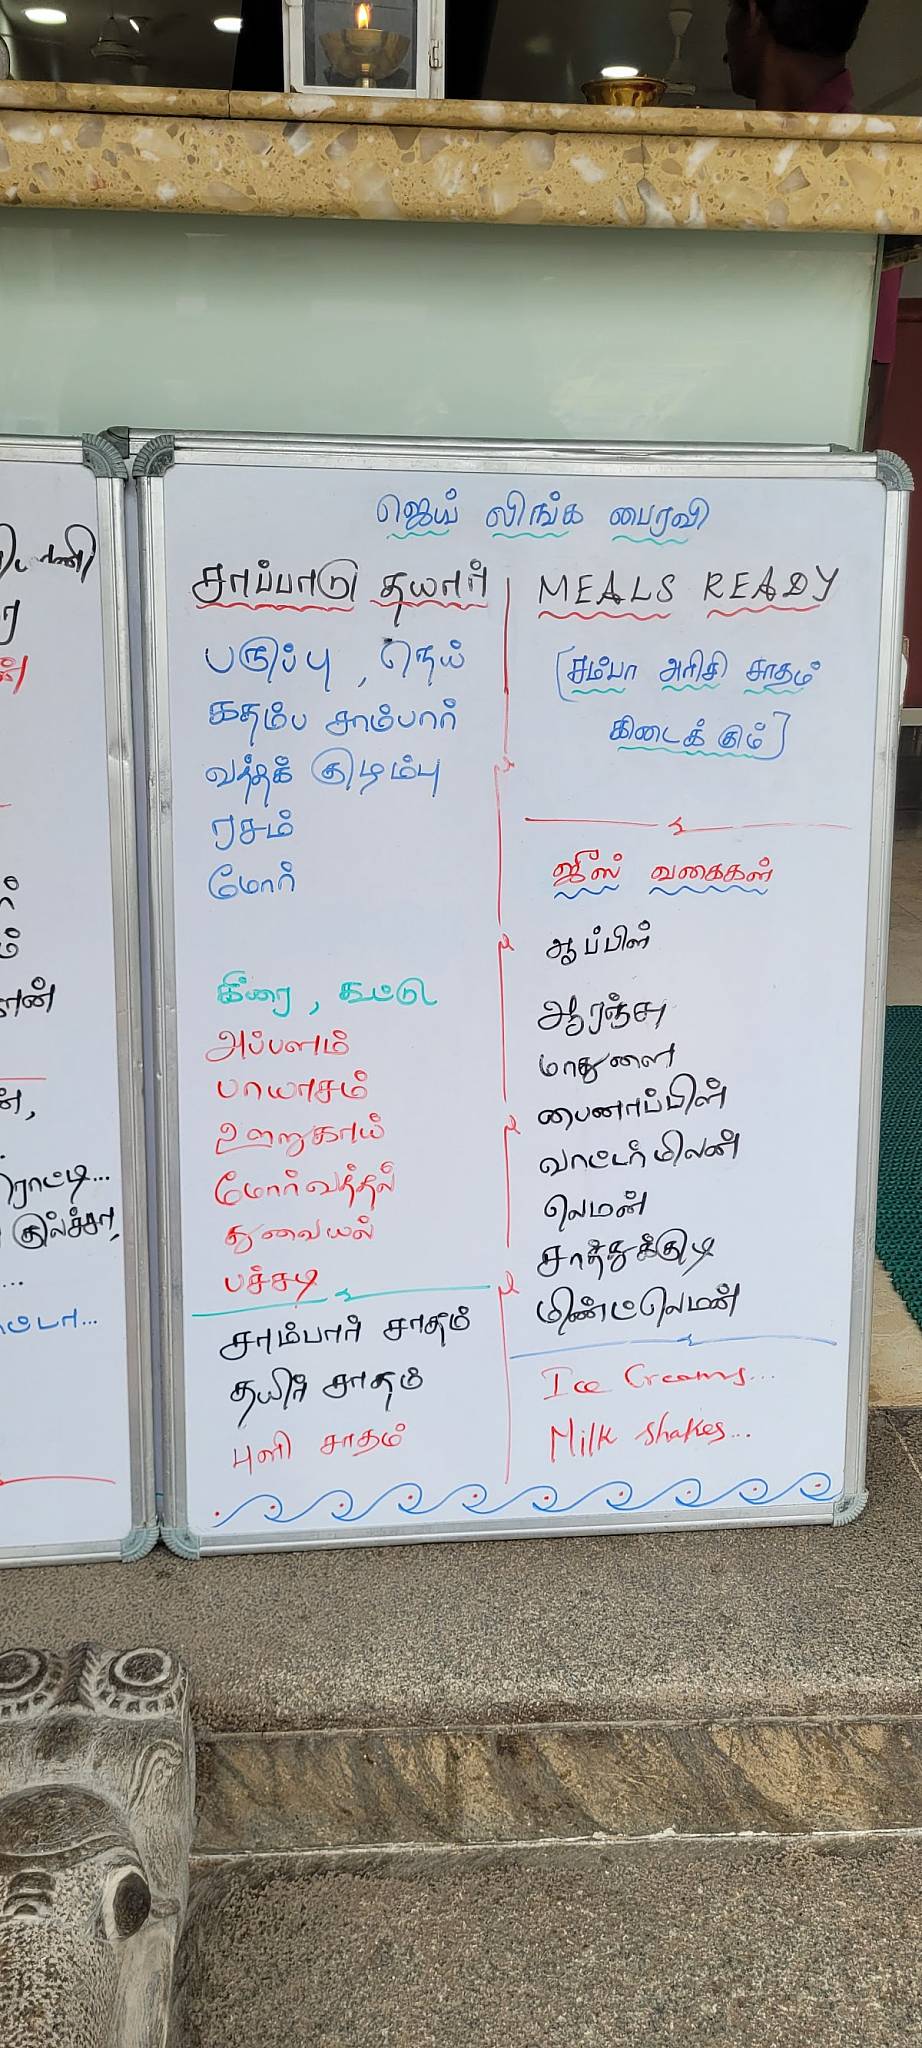 ஜெய் லிங்க பைரவி
சாப்பாடு தயார்
பருப்பு , நெய்
கதம்ப சாம்பார்
வத்தக் குழம்பு
ரசம்
மோர்
கீரை , கூட்டு
அப்பளம்
பாயாசம்
ஊறுகாய்
மோர்வத்தல்
துவையல்
பச்சடி
சாம்பார் சாதம்
தயிர் சாதம்
புளி சாதம்
MEALS READY
[சம்பா அரிசி சாதம்
கிடைக்கும்]
ஜீஸ் வகைகள்
ஆப்பிள்
ஆரஞ்சு
மாதுளை
பைனாப்பிள்
வாட்டர்மிலன்
லெமன்
சாத்துக்குடி
மிண்ட்லெமன்
Ice Creams...
Milk shakes...